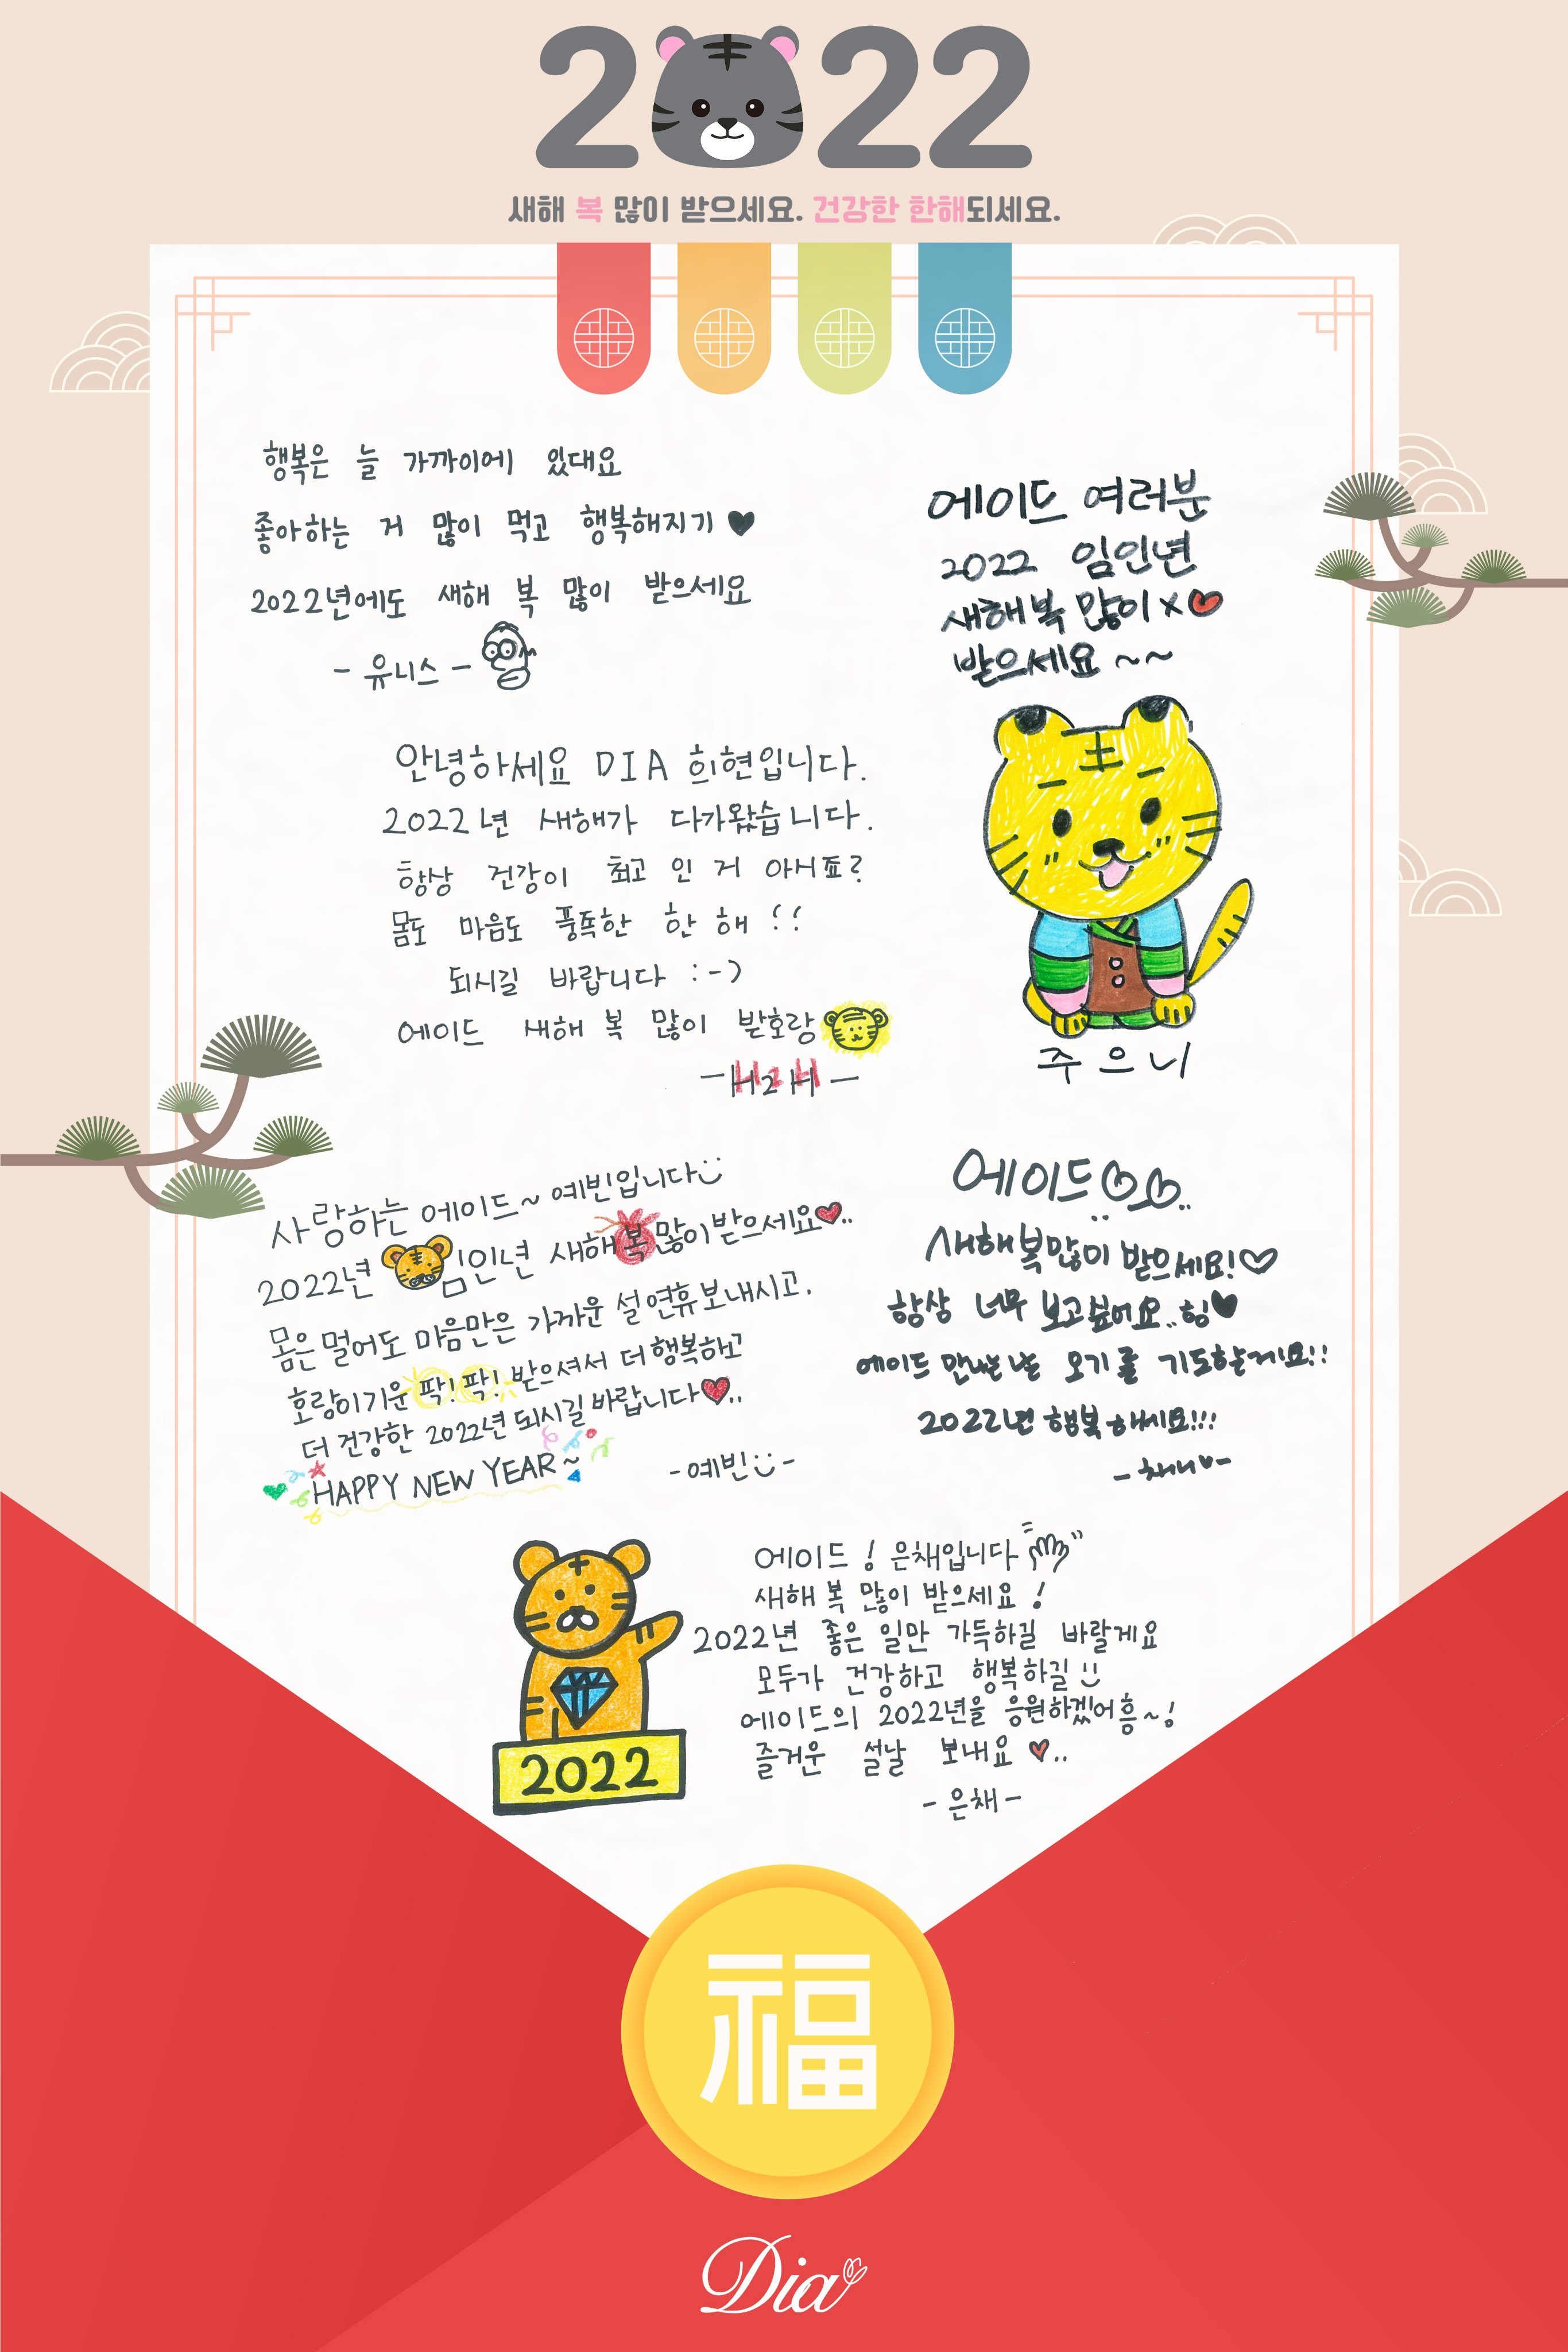 2022
새해 복 많이 받으세요. 건강한 한해되세요.
행복은 늘 가까이에 있대요
좋아하는 거 많이 먹고 행복해지기 ♥
2022년에도 새해 복 많이 받으세요
- 유니스 -
에이드 여러분
2022 임인년
새해 복 많이 x ♥
받으세요 ~~
주으니
안녕하세요 DIA 희현입니다.
2022년 새해가 다가왔습니다.
항상 건강이 최고 인 거 아시죠?
몸도 마음도 풍족한 한 해 !!
되시길 바랍니다 :-)
에이드 새해 복 많이 받호랑
- H2H -
사랑하는 에이드~ 예빈입니다
2022년 임인년 새해 복 많이 받으세요♥..
몸은 멀어도 마음만은 가까운 설 연휴 보내시고,
호랑이기운 팍! 팍! 받으셔서 더 행복하고
더 건강한 2022년 되시길 바랍니다♥..
HAPPY NEW YEAR~
-예빈-
에이드♡♡..
새해 복 많이 받으세요!♡
항상 너무 보고싶어요.. 힝♥
에이드 만나는 오기를 기도할게요!!
2022년 행복하세요!!!
- 채니♥-
에이드 ! 은채입니다
새해 복 많이 받으세요 !
2022년 좋은 일만 가득하길 바랄게요
모두가 건강하고 행복하길
에이드의 2022년을 응원하겠어흥~!
즐거운 설날 보내요 ♥..
- 은채 -
2022
福
Dia